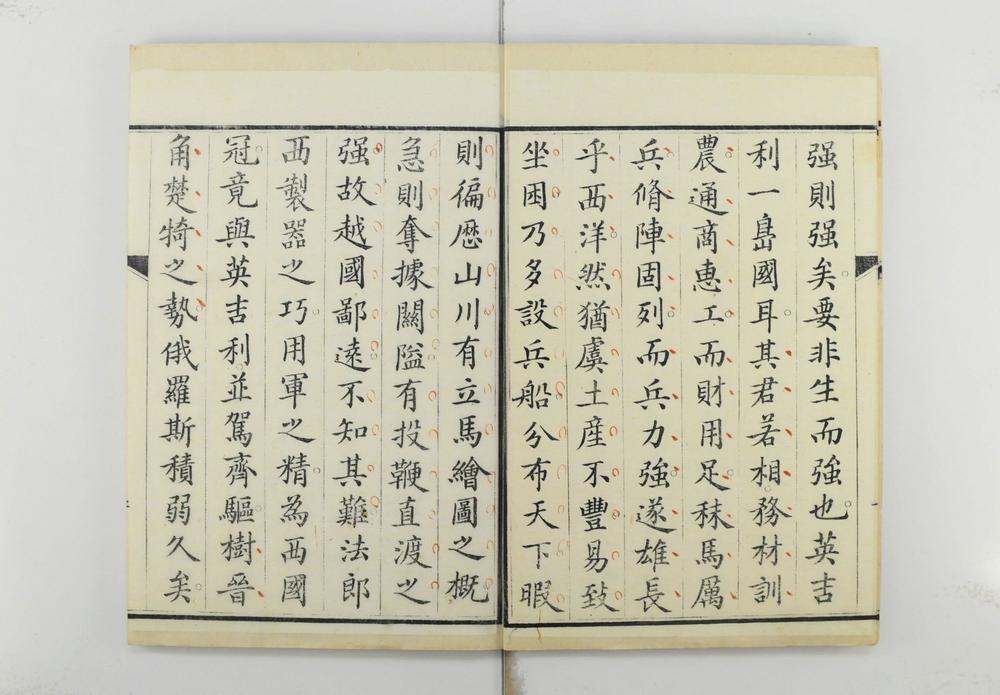 强則强矣要非生而強也英吉
利一島國耳其君若相務材訓
農通商惠工而財用足秣馬厲
兵脩陣固列而兵力強遂雄長
乎西洋然猶虞土産不豐易致
坐困乃多設兵船分布天下暇
則徧歷山川有立馬繪圖之概
急則奪據關隘有投鞭直渡之
强故越國鄙遠不知其難法郎
西製器之巧用軍之精為西國
冠竟與英吉利並駕齊驅樹晉
角楚犄之勢俄羅斯積弱久矣